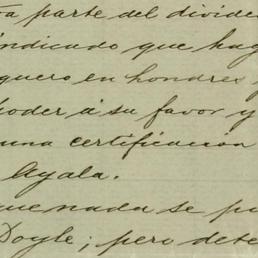 parte del divide
indicado que hag
quero en hondres
poder á su favor y
una certificacion
Ayala.
que nada se pu
Doyle; pero dete